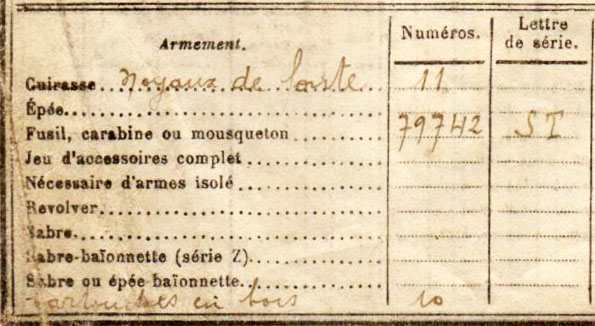 Armement. Numéros. Lettre de série.
Cuirasse noyaux de poste 11
Épée
Fusil, carabine ou mousqueton 79742 ST
Jeu d'accessoires complet
Nécessaire d'armes isolé
Revolver
Sabre
Sabre-baïonnette (série Z)
Sabre ou épée baïonnette
Cartouches en bois 10